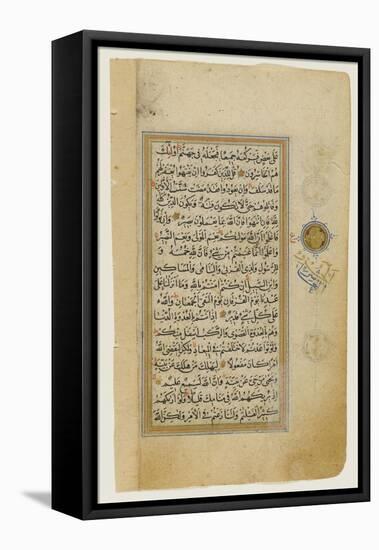 على بعض فيركمه جميعا فيجعله في جهنم أولئك
هم الخاسرون قل للذين كفروا إن ينتهوا يغفر لهم
ما قد سلف وإن يعودوا فقد مضت سنت الأولين
وقاتلوهم حتى لا تكون فتنة ويكون الدين كله
لله فإن انتهوا فإن الله بما يعملون بصير وإن تولوا
فاعلموا أن الله موليكم نعم المولى ونعم النصير
واعلموا أنما غنمتم من شيء فأن لله خمسه
وللرسول ولذي القربى واليتامى والمساكين
وابن السبيل إن كنتم آمنتم بالله وما أنزلنا على
عبدنا يوم الفرقان يوم التقى الجمعان والله
على كل شيء قدير إذ أنتم بالعدوة الدنيا
وهم بالعدوة القصوى والركب أسفل منكم
ولو تواعدتم لاختلفتم في الميعاد ولكن ليقضي الله
أمرا كان مفعولا ليهلك من هلك عن بينة
ويحيى من حي عن بينة وإن الله لسميع عليم
إذ يريكهم الله في منامك قليلا ولو أريكهم
كثيرا لفشلتم ولتنازعتم في الأمر ولكن الله